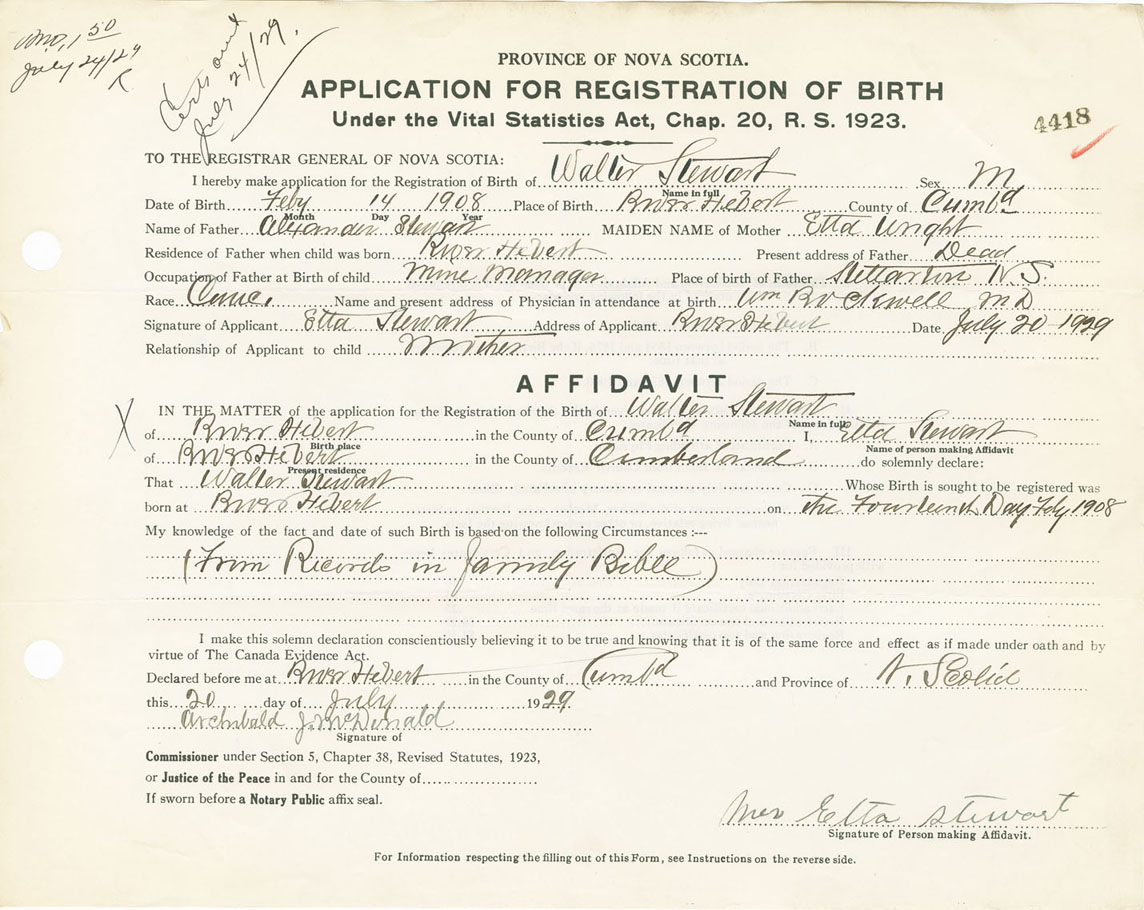 $1 50
July 24/29
R
Cert sent
July 24/29.
PROVINCE OF NOVA SCOTIA.
APPLICATION FOR REGISTRATION OF BIRTH
Under the Vital Statistics Act, Chap. 20, R. S. 1923.
4418
TO THE REGISTRAR GENERAL OF NOVA SCOTIA:
I hereby make application for the Registration of Birth of Walter Stewart Sex M
Name in full
Date of Birth Feby 14 1908 Place of Birth River Hebert County of Cumbd
Month Day Year
Name of Father Alexander Stewart MAIDEN NAME of Mother Etta Wright
Residence of Father when child was born River Hebert Present address of Father Dead
Occupation of Father at Birth of child Mine Manager Place of birth of Father Stellarton N.S.
Race Cauc. Name and present address of Physician in attendance at birth Wm Rockwell MD
Signature of Applicant Etta Stewart Address of Applicant River Hebert Date July 20 1929
Relationship of Applicant to child Mother
AFFIDAVIT
X IN THE MATTER of the application for the Registration of the Birth of Walter Stewart
Name in full
of River Hebert in the County of Cumbd I, Etta Stewart
Birth place Name of person making Affidavit
of River Hebert in the County of Cumberland do solemnly declare:
Present residence
That Walter Stewart Whose Birth is sought to be registered was
born at River Hebert on the Fourteenth Day Feby 1908
My knowledge of the fact and date of such Birth is based on the following Circumstances :---
(From Records in Family Bible)
I make this solemn declaration conscientiously believing it to be true and knowing that it is of the same force and effect as if made under oath and by
virtue of The Canada Evidence Act.
Declared before me at River Hebert in the County of Cumbd and Province of N. Scotia
this 20 day of July 1929
Archibald J. McDonald
Signature of
Commissioner under Section 5, Chapter 38, Revised Statutes, 1923,
or Justice of the Peace in and for the County of
If sworn before a Notary Public affix seal.
Mrs Etta Stewart
Signature of Person making Affidavit.
For Information respecting the filling out of this Form, see Instructions on the reverse side.